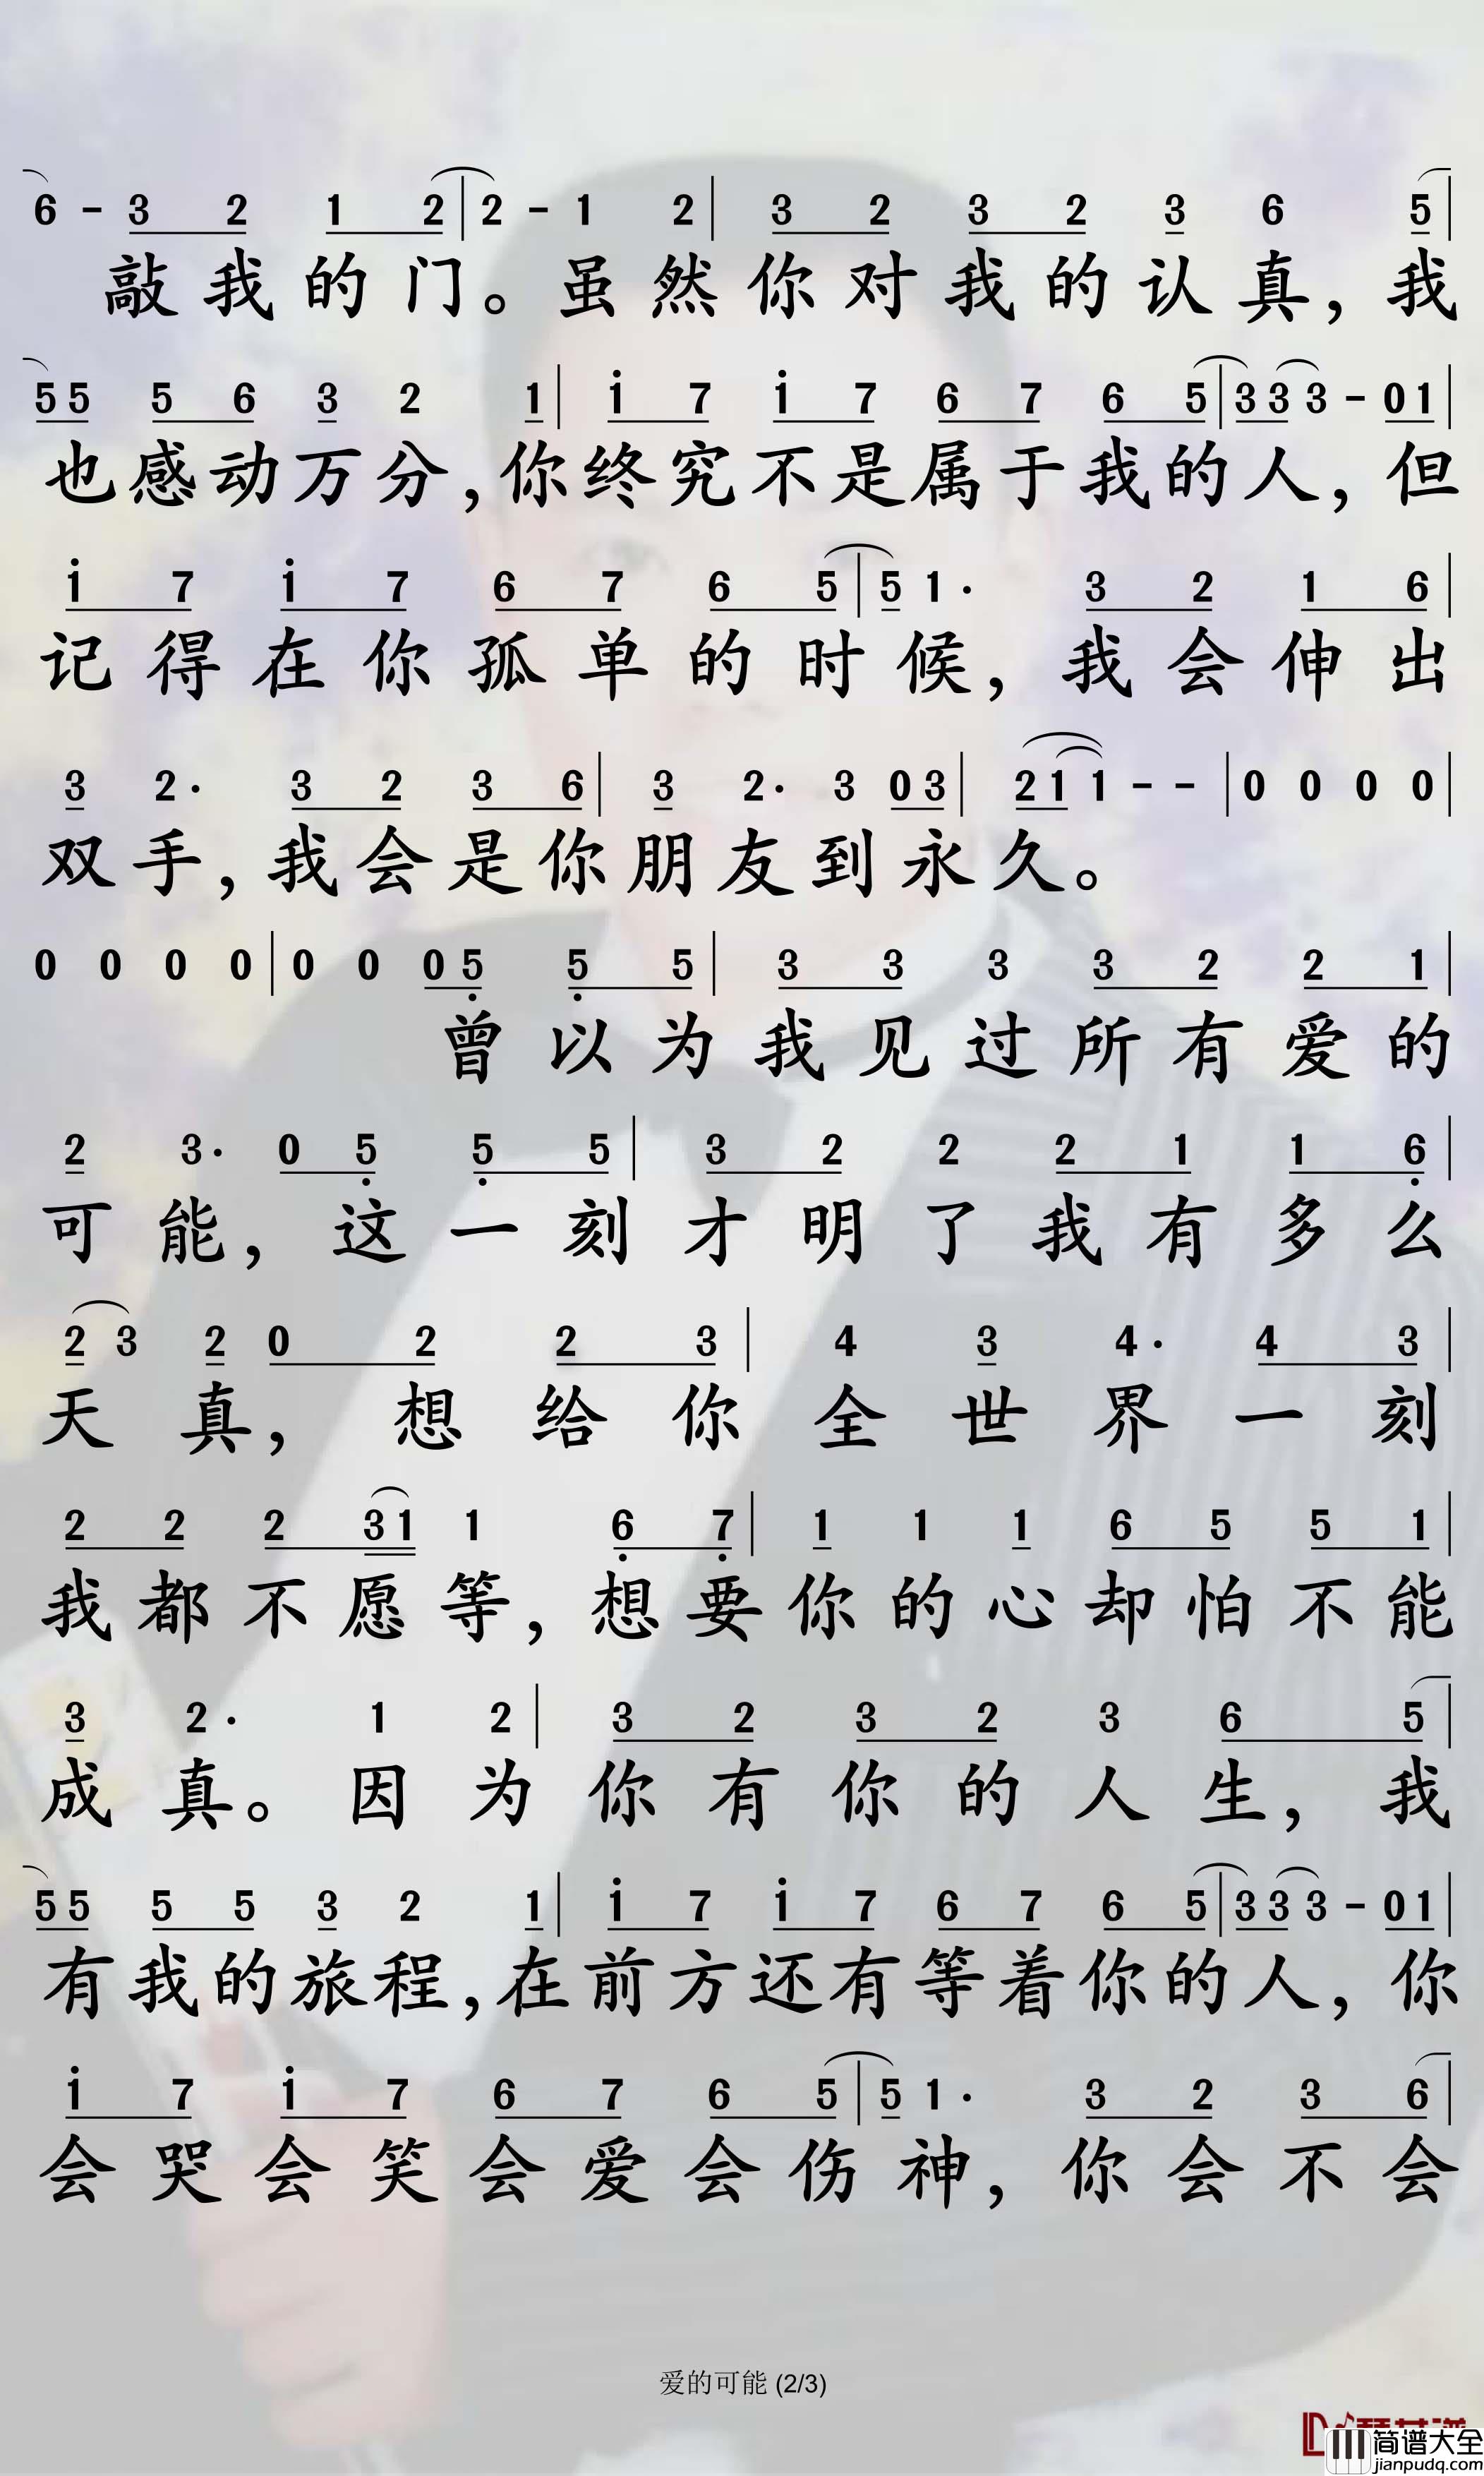 6 - 3 2 1 2 | 2 - 1 2 | 3 2 3 2 3 6 5 |
敲我的门。虽然你对我的认真，我
5 5 5 6 3 2 1 | i 7 i 7 6 7 6 5 | 3 3 3 - 0 1 |
也感动万分，你终究不是属于我的人，但
i 7 i 7 6 7 6 5 | 5 1 · 3 2 1 6 |
记得在你孤单的时候，我会伸出
3 2 · 3 2 3 6 | 3 2 · 3 0 3 | 2 1 1 - - | 0 0 0 0 |
双手，我会是你朋友到永久。
0 0 0 0 | 0 0 0 5 5 5 | 3 3 3 3 2 2 1 |
曾以为我见过所有爱的
2 3 · 0 5 5 5 | 3 2 2 2 1 1 6 |
可能，这一刻才明了我有多么
2 3 2 0 2 2 3 | 4 3 4 · 4 3 |
天真，想给你全世界一刻
2 2 2 3 1 1 6 7 | 1 1 1 6 5 5 1 |
我都不愿等，想要你的心却怕不能
3 2 · 1 2 | 3 2 3 2 3 6 5 |
成真。因为你有你的人生，我
5 5 5 5 3 2 1 | i 7 i 7 6 7 6 5 | 3 3 3 - 0 1 |
有我的旅程，在前方还有等着你的人，你
i 7 i 7 6 7 6 5 | 5 1 · 3 2 3 6 |
会哭会笑会爱会伤神，你会不会
爱的可能 (2/3)
简谱大全
jianpudq.com